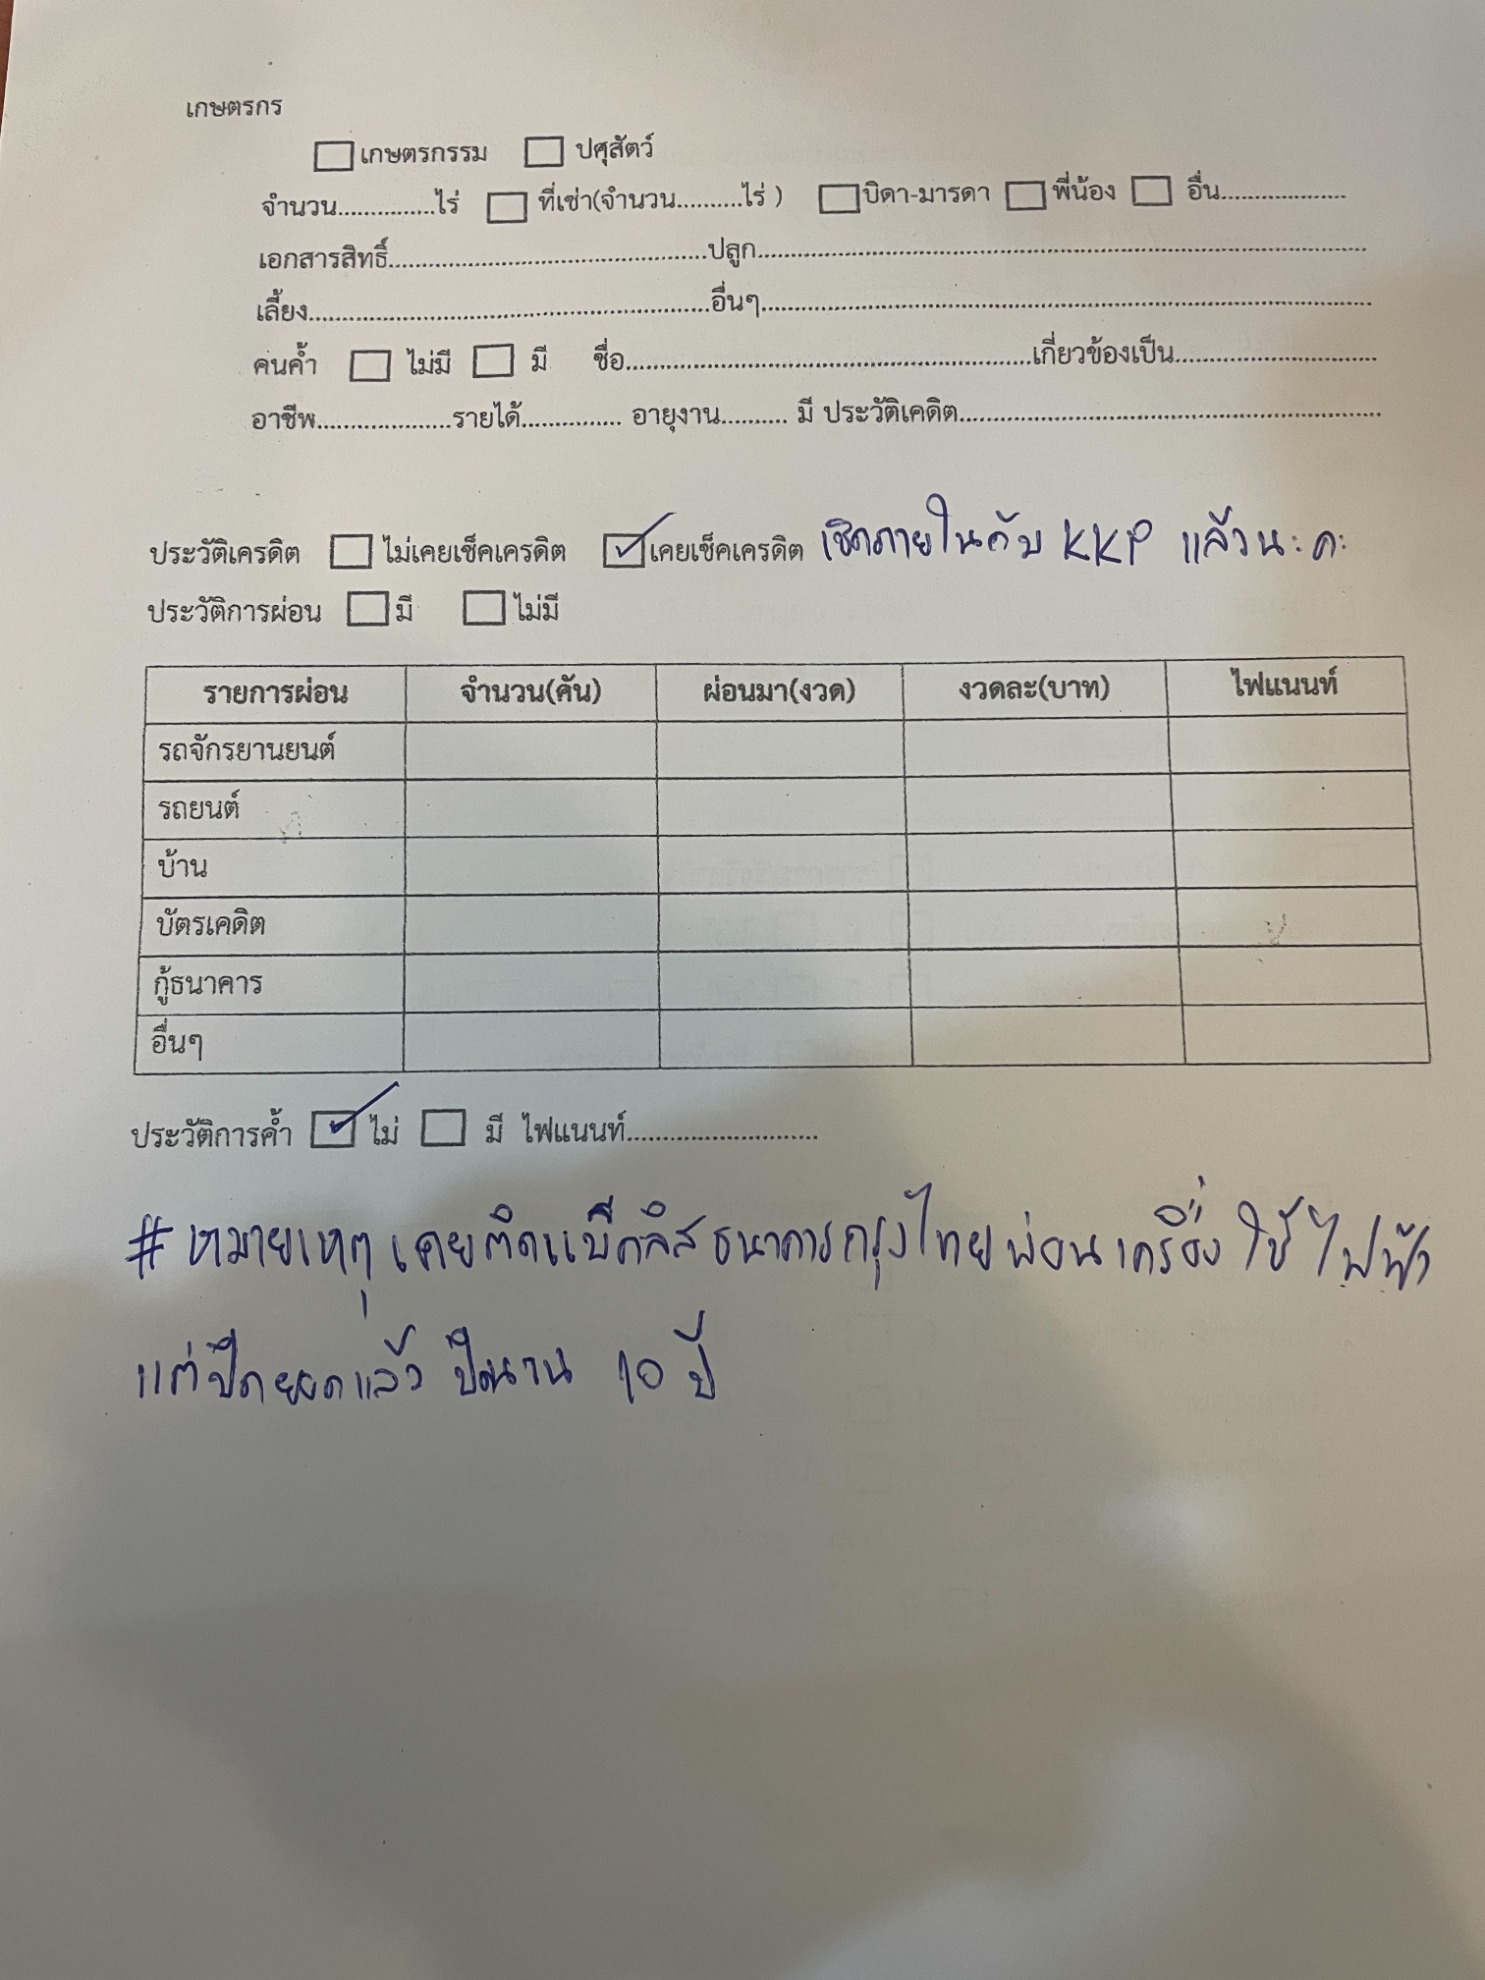 เกษตรกร
☐ เกษตรกรรม ☐ ปศุสัตว์
จำนวน...............ไร่ ☐ ที่เช่า(จำนวน..........ไร่ ) ☐ บิดา-มารดา ☐ พี่น้อง ☐ อื่น...................
เอกสารสิทธิ์................................................ปลูก............................................................................................
เลี้ยง............................................................อื่นๆ............................................................................................
คนค้ำ ☐ ไม่มี ☐ มี ชื่อ.............................................................เกี่ยวข้องเป็น...............................
อาชีพ....................รายได้............... อายุงาน.......... มี ประวัติเคดิต................................................................
ประวัติเครดิต ☐ ไม่เคยเช็คเครดิต ☑ เคยเช็คเครดิต เช็คภายในกับ KKP แล้วนะคะ
ประวัติการผ่อน ☐ มี ☐ ไม่มี
รายการผ่อน จำนวน(คัน) ผ่อนมา(งวด) งวดละ(บาท) ไฟแนนท์
รถจักรยานยนต์
รถยนต์
บ้าน
บัตรเคดิต
กู้ธนาคาร
อื่นๆ
ประวัติการค้ำ ☑ ไม่ ☐ มี ไฟแนนท์..........................
# หมายเหตุ เคยติดแบ็คลิสธนาคารกรุงไทยผ่อนเครื่องใช้ไฟฟ้า
แต่ปิดยอดแล้ว ปิดนาน 10 ปี